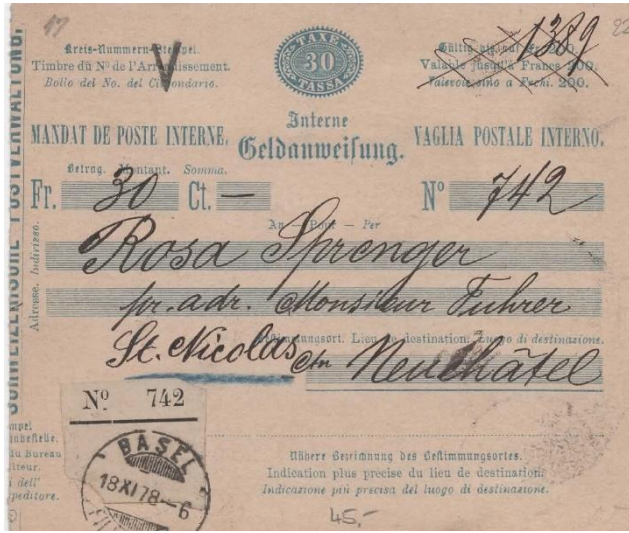 17
Kreis-Nummern-Stempel.
Timbre du Nº de l'Arrondissement.
Bollo del No. del Circondario.
V
TAXE
30
TASSA
1389
Valable jusqu'à Francs 200.
Valevole sino a Frchi. 200.
SCHWEIZERISCHE POSTVERWALTUNG.
MANDAT DE POSTE INTERNE.
Interne
Geldanweisung.
VAGLIA POSTALE INTERNO.
Betrag. Montant. Somma.
Fr. 30 Ct. —
Nº 742
An — Pour — Per
Adresse. Indirizzo.
Rosa Sprenger
pr. adr. Monsieur Fuhrer
Bestimmungsort. Lieu de destination. Luogo di destinazione.
St. Nicolas
Neuchâtel
Nº 742
BASEL
18 XI 78–6
du Bureau
dell'
Nähere Bezeichnung des Bestimmungsortes.
Indication plus precise du lieu de destination.
Indicazione più precisa del luogo di destinazione.
45,-